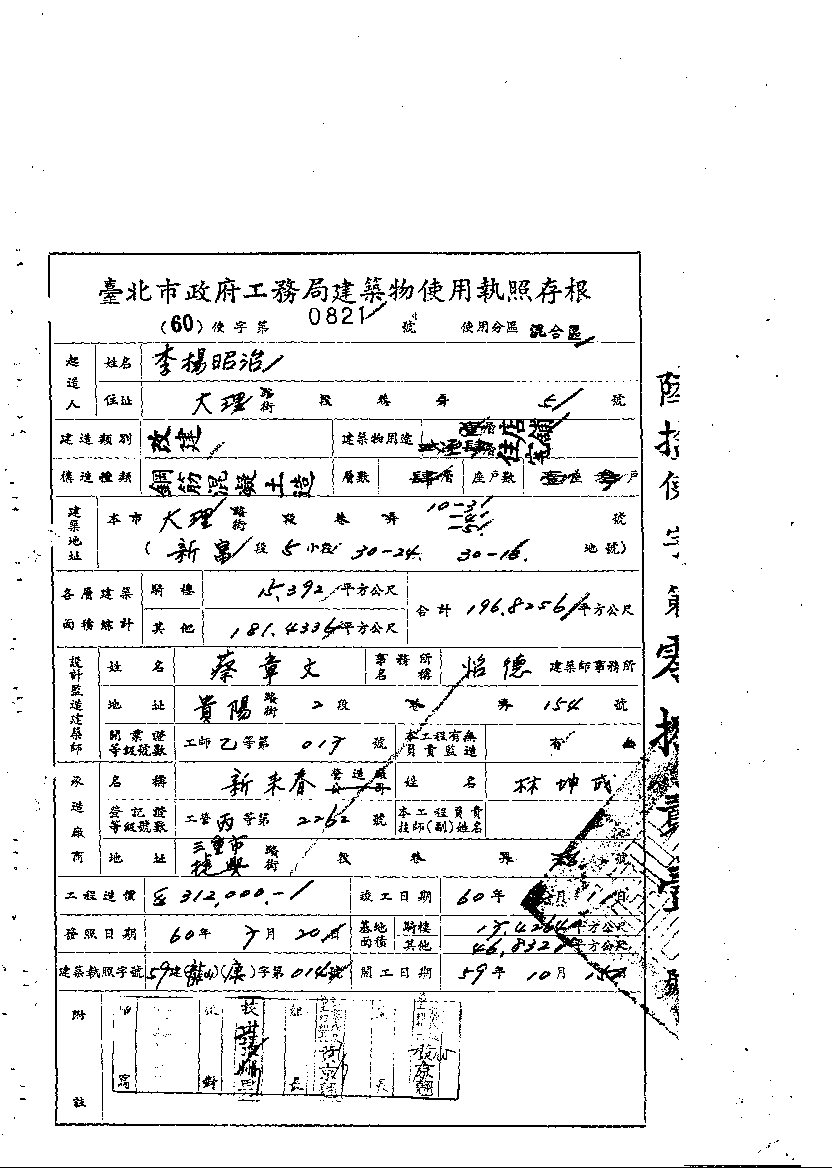 臺北市政府工務局建築物使用執照存根
(60)使字第 0821 號 使用分區 混合區
起造人 姓名 李楊昭治
住址 大理 路街 段 巷 弄 51 號
建造類別 改建 建築物用途 店舖住宅
構造種類 鋼筋混凝土造 層數 肆層 座戶數 戶
建築地址 本市 大理 路街 段 巷 弄 號
(新富 段 5 小段 30-24. 30-16. 地號)
各層建築面積總計 騎樓 15.392 平方公尺 合計 196.8256 平方公尺
其他 181.4336 平方公尺
設計監造建築師 姓名 蔡章文 事務所名稱 炤德 建築師事務所
地址 貴陽 路街 2 段 巷 弄 154 號
開業證等級號數 工師 乙 等第 號 本工程有無負責監造 有 無
承造廠商 名稱 新來春 營造廠公司 姓名 林坤武
登記證等級號數 工營 丙 等第 2262 號 本工程負責技師(副)姓名
地址 三重市 路街 段 巷 弄 號
工程造價 312,000.- 竣工日期 60 年 月 日
發照日期 60 年 月 20 日 基地面積 騎樓 平方公尺
其他 46.832 平方公尺
建築執照字號 59 建 字第 號 開工日期 59 年 10 月 15 日
附註
校對 組長
陸拾使字第零捌貳壹號